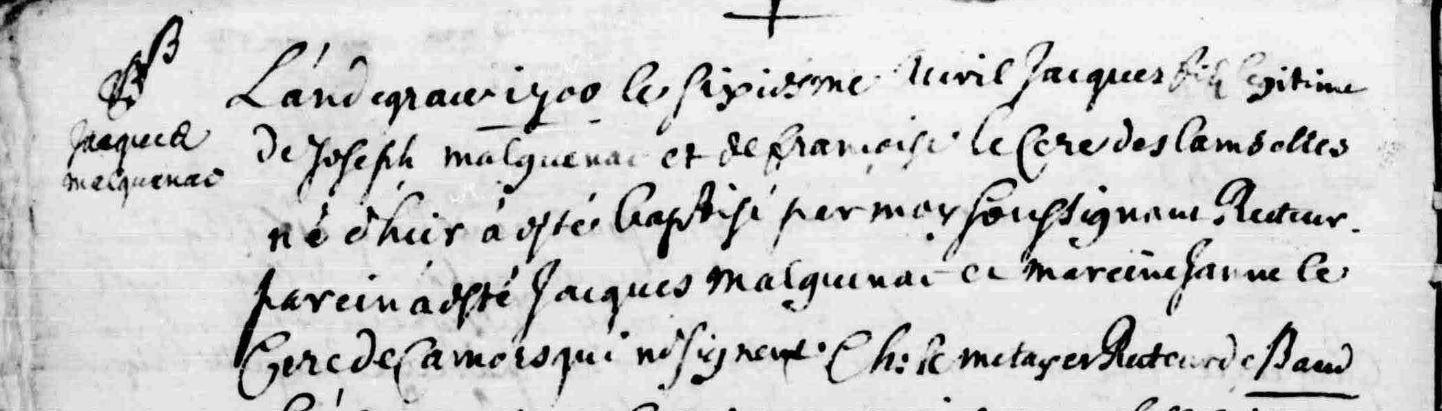 B
Jacques
malquenac
L'an de grace 1700 le sixiesme Avril Jacques fils legitime
de Joseph malquenac et de francoise le Cere des lambelles
né d'hier à esté baptisé par moy soussignant Recteur.
parein à esté Jacques malquenac et mareine Janne le
Cere de Camors qui ne signent. Ch: le metayer Recteur de Baud